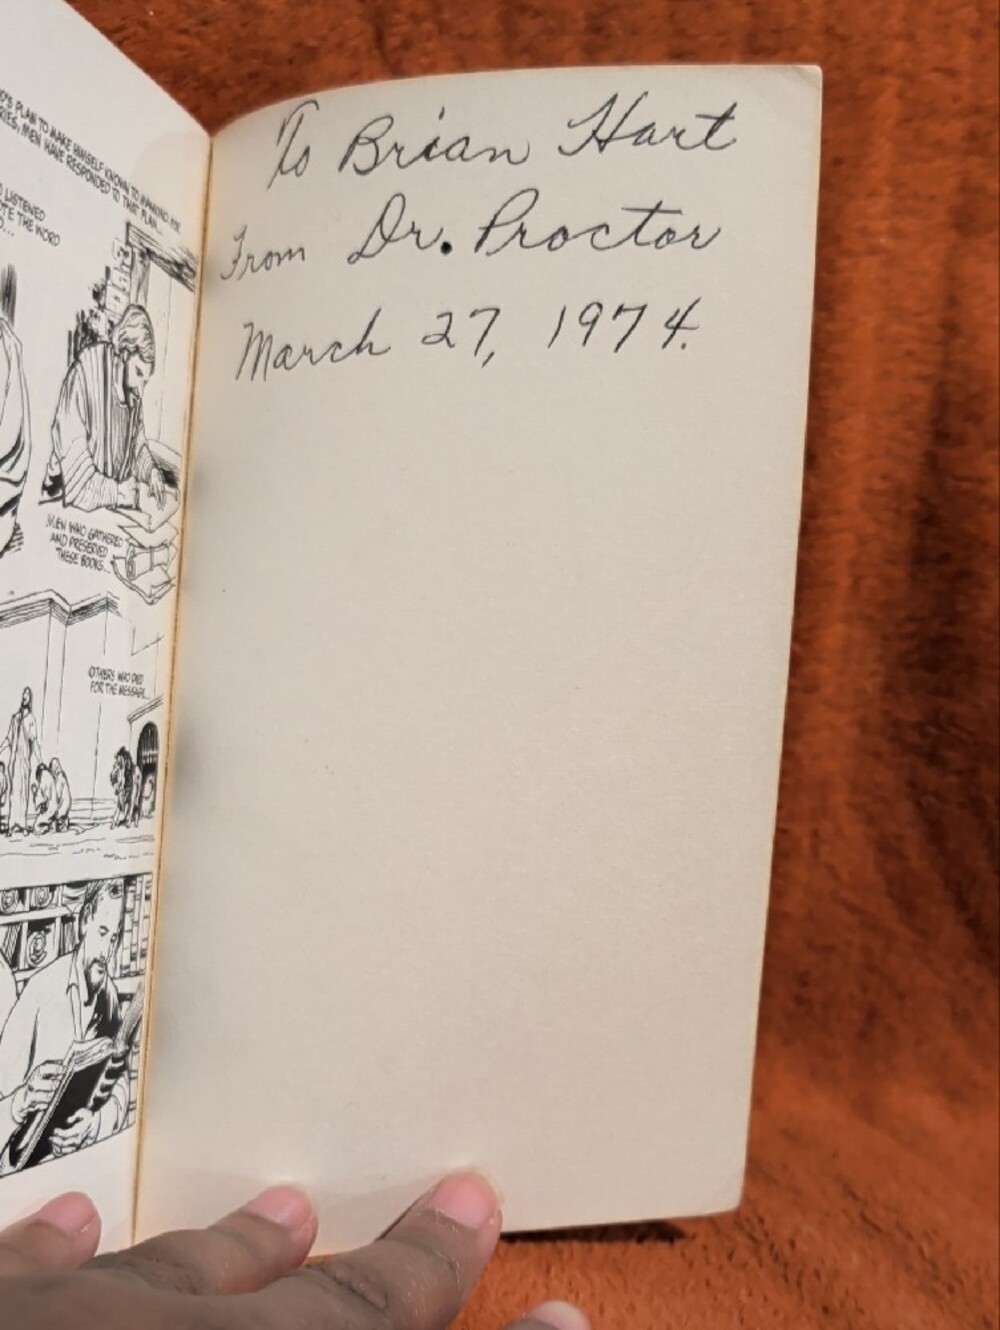 GOD'S PLAN TO MAKE HIMSELF KNOWN TO MANKIND.
MEN HAVE RESPONDED TO THAT PLAN...
LISTENED
THE WORD
MEN WHO GATHERED
AND PRESERVED
THESE BOOKS...
OTHERS WHO DIED
FOR THE MESSAGE...
To Brian Hart
From Dr. Proctor
March 27, 1974.